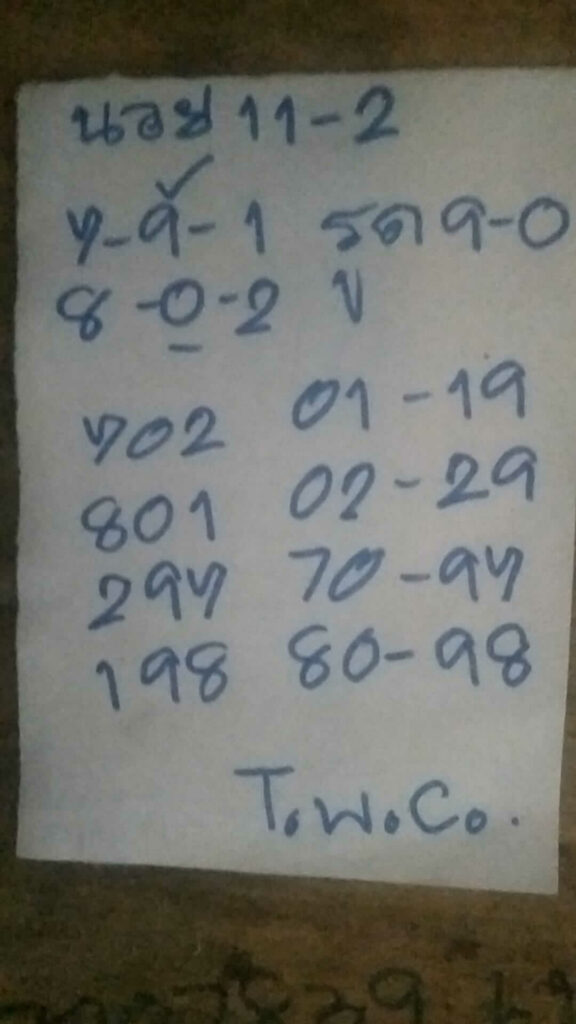 นอย 11-2
7-9-1 รูด 9-0
8-0-2 ปู
702 01-19
801 02-29
297 70-97
198 80-98
T.พ.C..